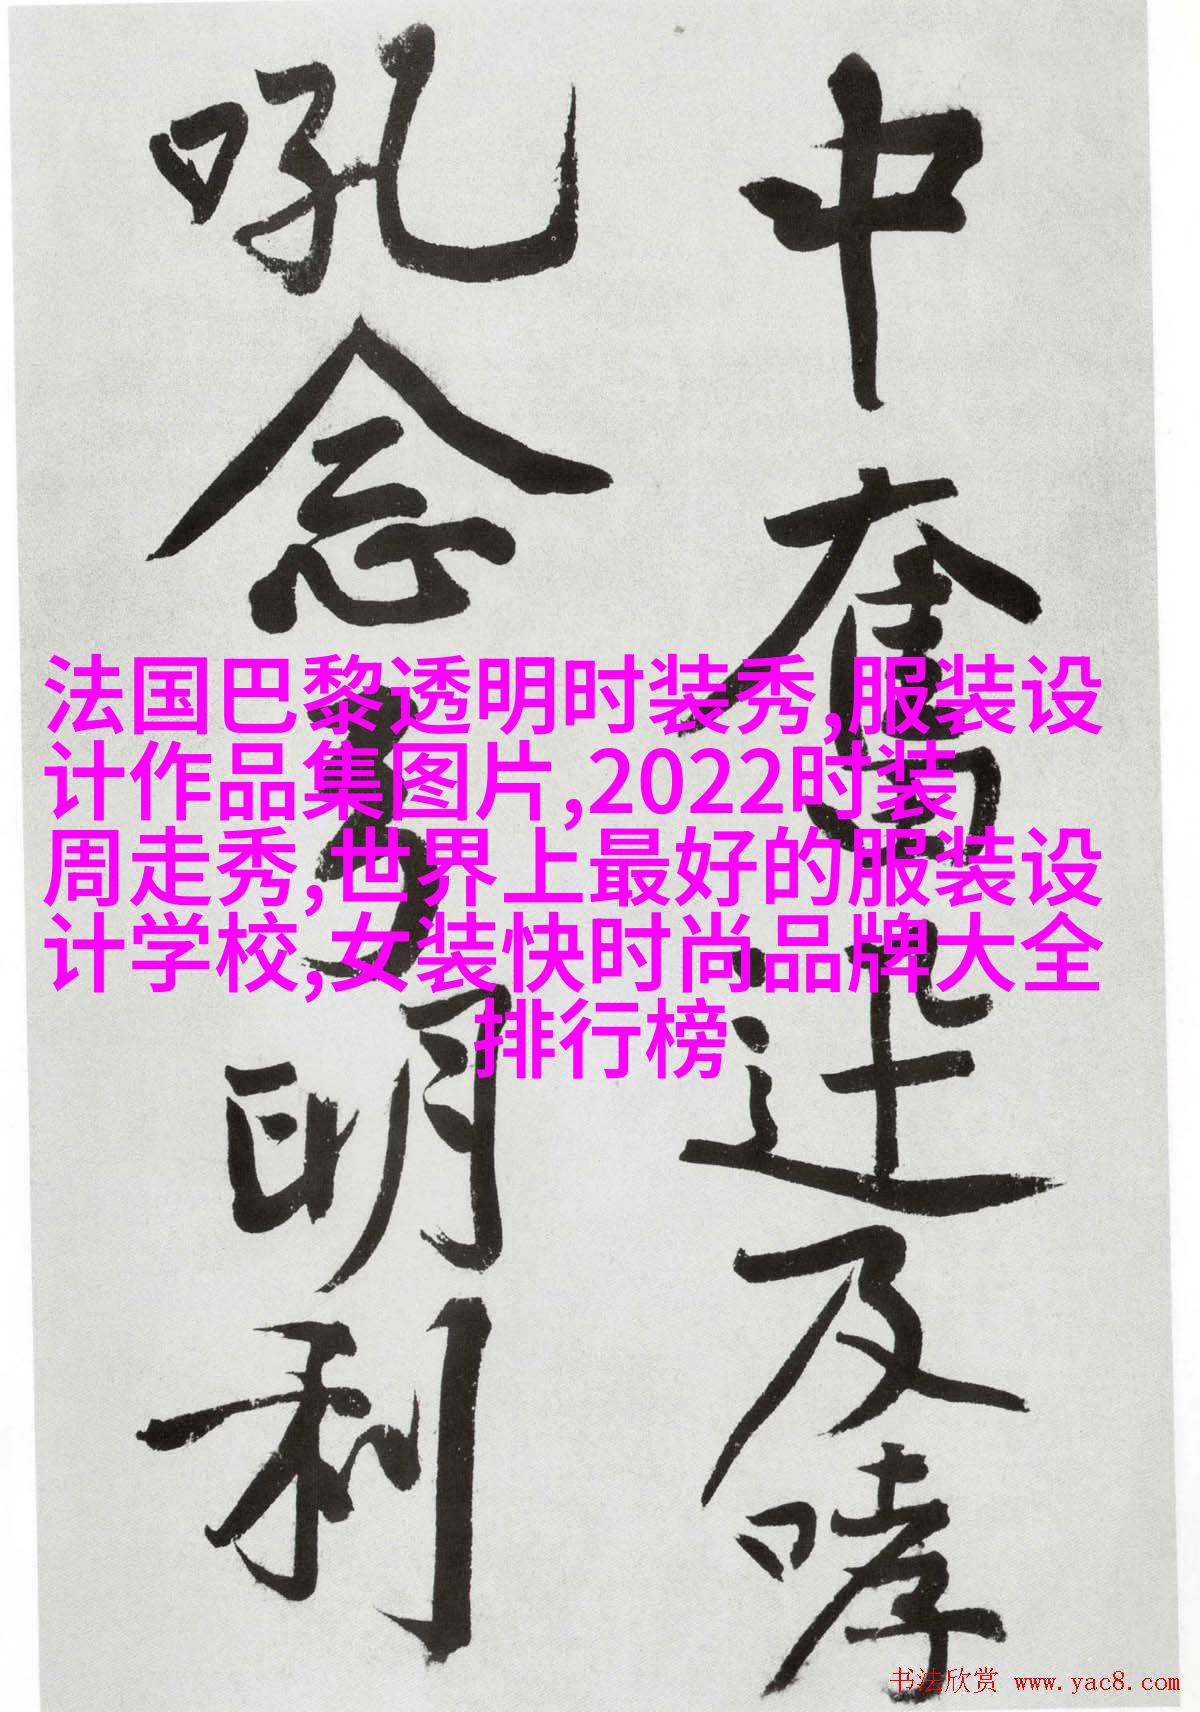 中奮迅及哮
吼念明利
法国巴黎透明时装秀,服装设
计作品集图片,2022时装
周走秀,世界上最好的服装设
计学校,女装快时尚品牌大全
排行榜
书法欣赏 www.yac8.com